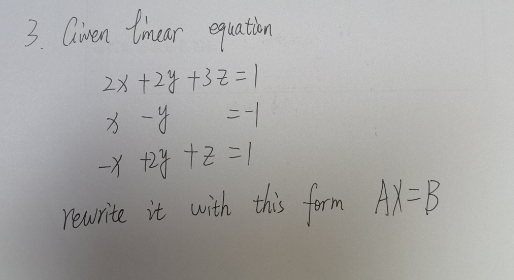 3. Given linear equation
2x + 2y + 3z = 1
x - y = -1
-x + 2y + z = 1
rewrite it with this form AX=B